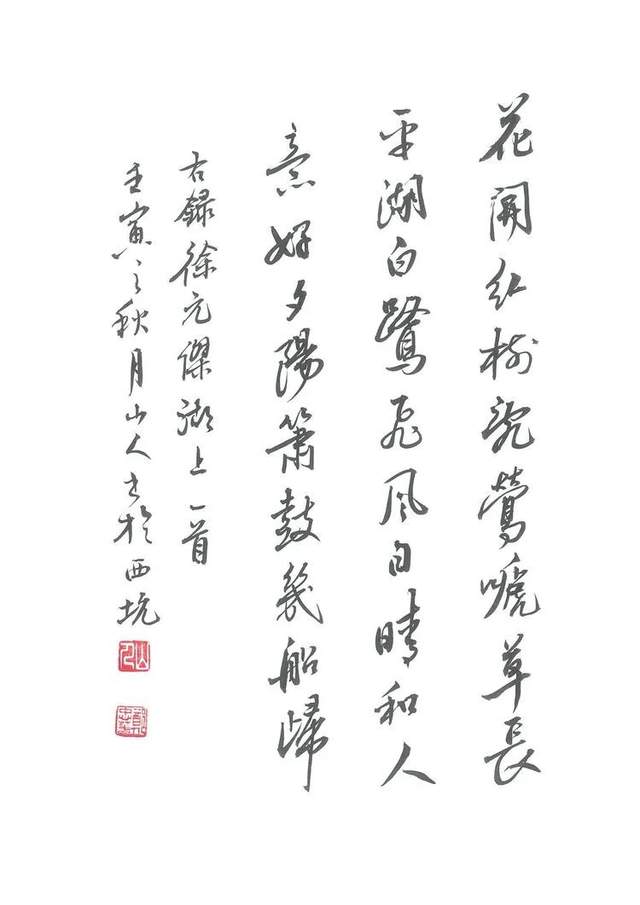 花開紅樹亂鶯嗁草長
平湖白鷺飛風日晴和人
意好夕陽簫鼓幾船歸
右錄徐元傑湖上一首
壬寅之秋月山人書於西坑
山人